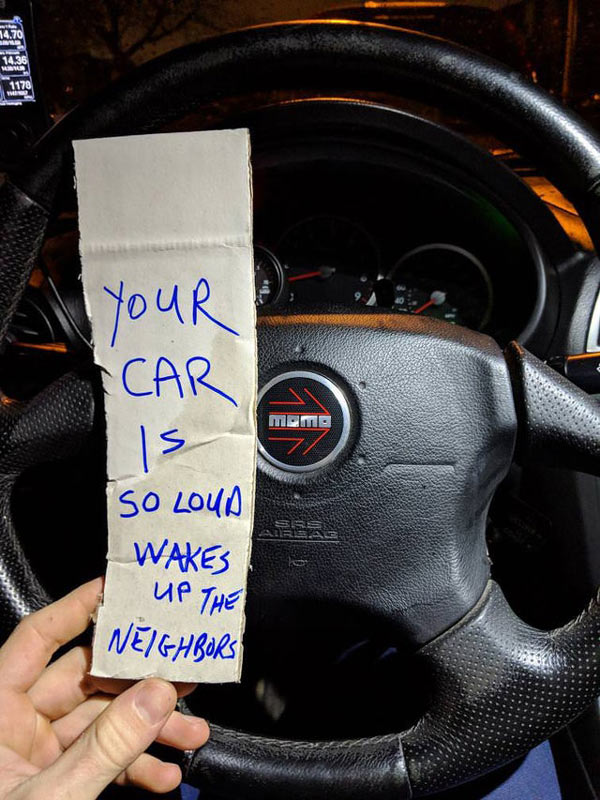 14.70
14.36
1170
YOUR
CAR
IS
SO LOUD
WAKES
UP THE
NEIGHBORS
MOMO
SRS
AIRBAG